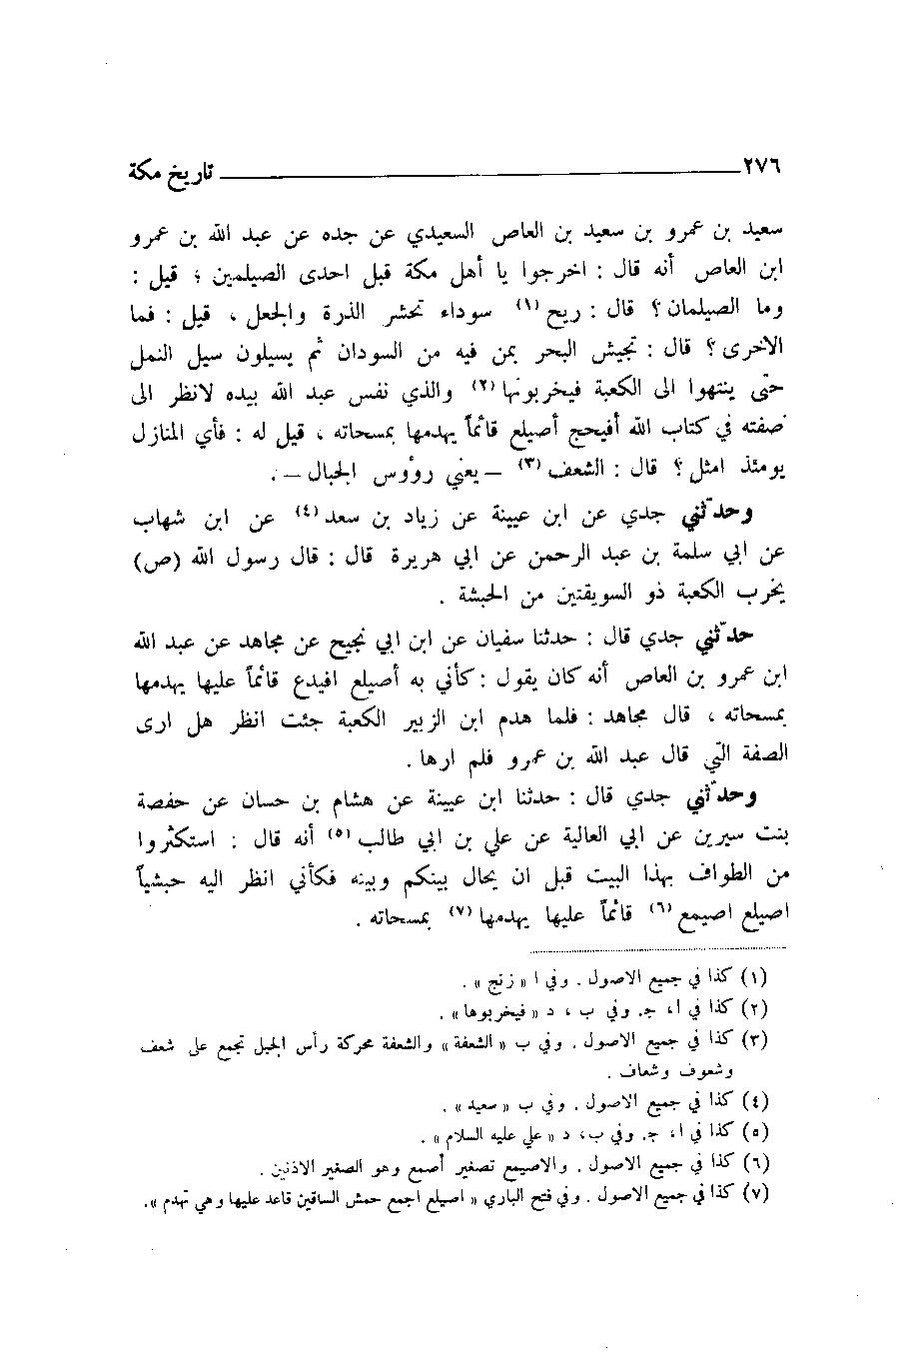 ٢٧٦ تاريخ مكة
سعيد بن عمرو بن سعيد بن العاص السعيدي عن جده عن عبد الله بن عمرو
ابن العاص أنه قال : اخرجوا يا أهل مكة قبل احدى الصيلمين ؛ قيل :
وما الصيلمان ؟ قال : ريح (١) سوداء تحشر الذرة والجعل ، قيل : فما
الاخرى ؟ قال : تجيش البحر بمن فيه من السودان ثم يسيلون سيل النمل
حتى ينتهوا الى الكعبة فيخربونها (٢) والذي نفس عبد الله بيده لانظر الى
صفته في كتاب الله أفيحج أصيلع قائماً يهدمها بمسحاته ، قيل له : فأي المنازل
يومئذ امثل ؟ قال : الشعف (٣) – يعني رؤوس الجبال – .
وحدّثني جدي عن ابن عيينة عن زياد بن سعد (٤) عن ابن شهاب
عن ابي سلمة بن عبد الرحمن عن ابي هريرة قال : قال رسول الله (ص)
يخرب الكعبة ذو السويقتين من الحبشة .
حدّثني جدي قال : حدثنا سفيان عن ابن ابي نجيح عن مجاهد عن عبد الله
ابن عمرو بن العاص أنه كان يقول : كأني به أصيلع افيدع قائماً عليها يهدمها
بمسحاته ، قال مجاهد : فلما هدم ابن الزبير الكعبة جئت انظر هل ارى
الصفة التي قال عبد الله بن عمرو فلم ارها .
وحدّثني جدي قال : حدثنا ابن عيينة عن هشام بن حسان عن حفصة
بنت سيرين عن ابي العالية عن علي بن ابي طالب (٥) أنه قال : استكثروا
من الطواف بهذا البيت قبل ان يحال بينكم وبينه فكأني انظر اليه حبشياً
اصيلع اصيمع (٦) قائماً عليها يهدمها (٧) بمسحاته .
(١) كذا في جميع الاصول . وفي ا « زنج » .
(٢) كذا في ا، ج. وفي ب ، د « فيخربوها » .
(٣) كذا في جميع الاصول . وفي ب « الشعفة » والشعفة محركة رأس الجبل تجمع على شعف
وشعوف وشعاف .
(٤) كذا في جميع الاصول . وفي ب « سعيد » .
(٥) كذا في ا، ج. وفي ب، د « علي عليه السلام » .
(٦) كذا في جميع الاصول . والاصيمع تصغير أصمع وهو الصغير الاذنين .
(٧) كذا في جميع الاصول . وفي فتح الباري « اصيلع اجمع حمش الساقين قاعد عليها وهي تهدم ».